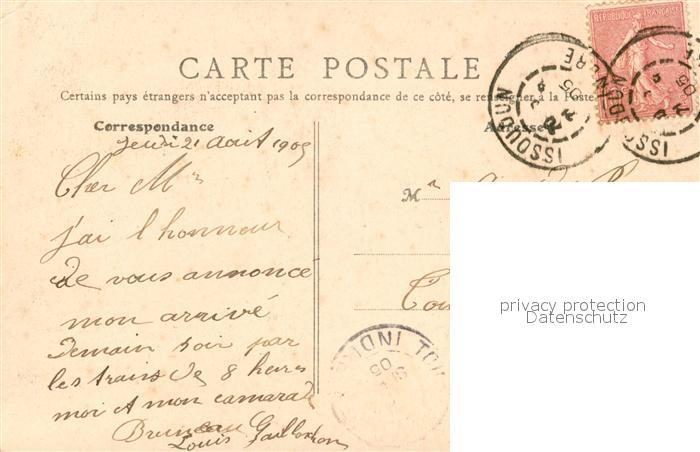 CARTE POSTALE
Certains pays étrangers n'acceptant pas la correspondance de ce côté, se renseigner à la Poste
RÉPUBLIQUE FRANÇAISE
ISSOUDUN
INDRE
05
ISSOUDUN
05
Correspondance
Adresse
Jeudi 21 Aout 1905
Cher Mr
M r
j'ai l honneur
de vous annoncé
mon arrivé
Demain soir par
les trains de 8 heures
moi et mon camarade
Bruneau
Louis
privacy protection
Datenschutz
05